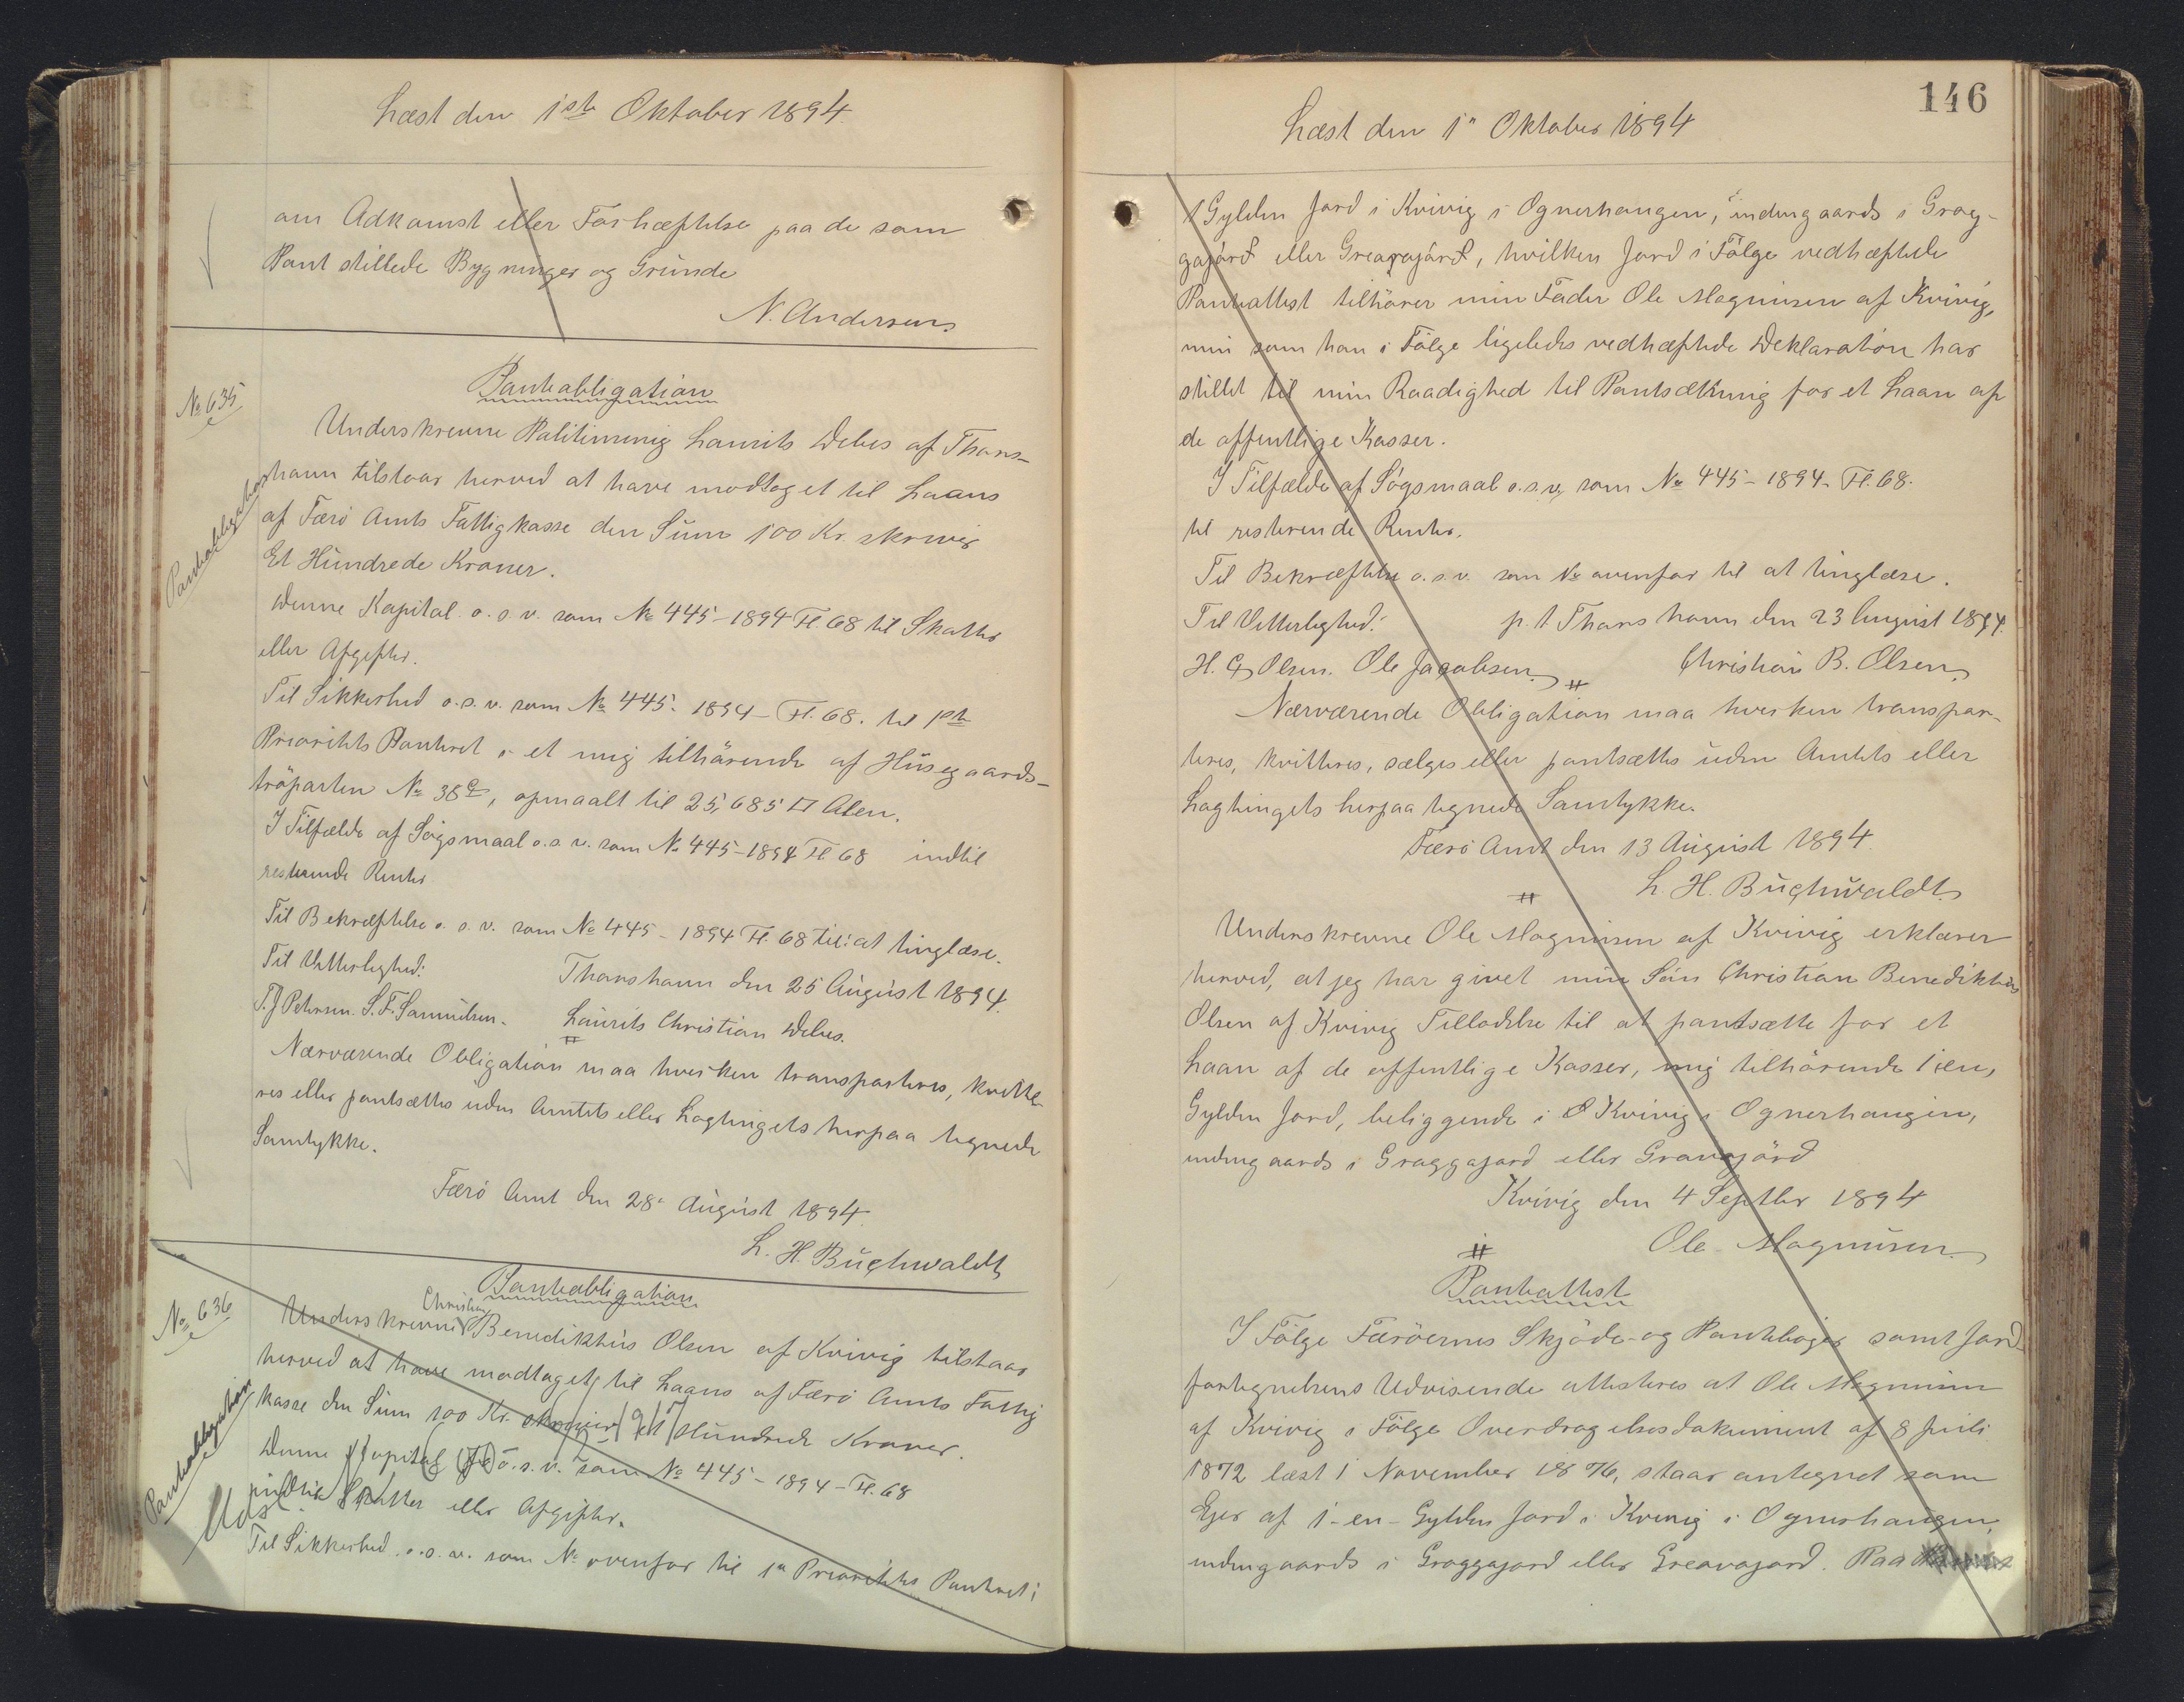 Læst den 1ste Oktober 1894
om Adkomst eller Forhæftelse paa de som
Pant stillede Bygninger og Grunde
N. Andersen
No 635
Pantobligation
Pantobligation
Underskrevne Politimenig Laurits Debes af Thors-
havn tilstaar herved at have modtaget til Laans
af Færö Amts Fattigkasse den Sum 100 Kr. skriver
Et Hundrede Kroner.
Denne Kapital o.s.v. som No 445-1894 Fl. 68 til Skatter
eller Afgifter.
Til Sikkerhed o.s.v. som No 445- 1894- Fl. 68. til 1ste
Prioritets Panteret i et mig tilhörende af Husegaards-
tröparten No 38c, opmaalt til 25,685 □ Alen.
I Tilfælde af Sögsmaal o.s.v. som No 445-1894 Fl 68 indtil
resterende Renter
Til Bekræftelse o.s.v. som No 445- 1894 Fl. 68 til: at tinglæse.
Til Vitterlighed: Thorshavn den 25 August 1894.
T.J Petersen. S.F. Samuelsen. Laurits Christian Debes.
Nærværende Obligation maa hverken transporteres, kvitte-
res eller pantsættes uden Amtets eller Lagtingets herpaa tegnede
Samtykke.
Færö Amt den 28 August 1894.
L. H. Buchwaldt
No. 636
Pantobligation
Pantobligation
Christian
Underskrevne Benediktus Olsen af Kvivig tilstaar
herved at have modtaget til Laans af Færö Amts Fattig
kasse den Sum 100 Kr. skriver Et Hundrede Kroner
Denne Kapital o.s.v. som No 445-1894-Fl. 68
Udsl
Skatter eller Afgifter.
Til Sikkerhed o.s.v. som No ovenfor til 1ste Prioritets Panteret i
146
Læst den 1" Oktober 1894
1 Gylden Jord i Kvivig i Ognerhaugen, indengaards i Grog-
gajörd eller Greavajörd, hvilken Jord i Fölge vedhæftede
Panteattest tilhörer min Fader Ole Magnusen af Kvivig,
min som han i Fölge ligeledes vedhæftede Deklaration har
stillet til min Raadighed til Pantsætning for et Laan af
de offentlige Kasser.
I Tilfælde af Sögsmaal o.s.v. som No 445-1894- Fl. 68.
til resterende Renter.
Til Bekræftelse o.s.v. som No ovenfor til at tinglæse.
Til Vitterlighed: p.t Thorshavn den 23 August 1894.
H. G Olsen. Ole Jacobsen Christian B. Olsen
Nærværende Obligation maa hverken transpor-
teres, kvitteres, sælges eller pantsættes uden Amtets eller
Lagtingets herpaa tegnede Samtykke.
Færö Amt den 13 August 1894.
L. H. Buchwaldt
Underskrevne Ole Magnusen af Kvivig erklærer
herved, at jeg har givet min Sön Christian Benediktus
Olsen af Kvivig Tilladelse til at pantsætte for et
Laan af de offentlige Kasser, mig tilhörende 1 en,
Gylden Jord, beliggende i Kvivig i Ognerhaugen,
indengaards i Groggajord eller Gravajörd
Kvivig den 4 Septbr 1894
Ole Magnusen
Panteattest
I Fölge Færöernes Skjöde- og Panteböger samt Jord-
fortegnelsens Udvisende attesteres at Ole Magnusen
af Kvivig i Fölge Overdragelsesdokument af 8 Juli
1872 læst 1 November 1876, staar antegnet som
Ejer af 1-en- Gylden Jord i Kvivig i Ognerhaugen,
indengaards i Groggajord eller Greavajord. Paa